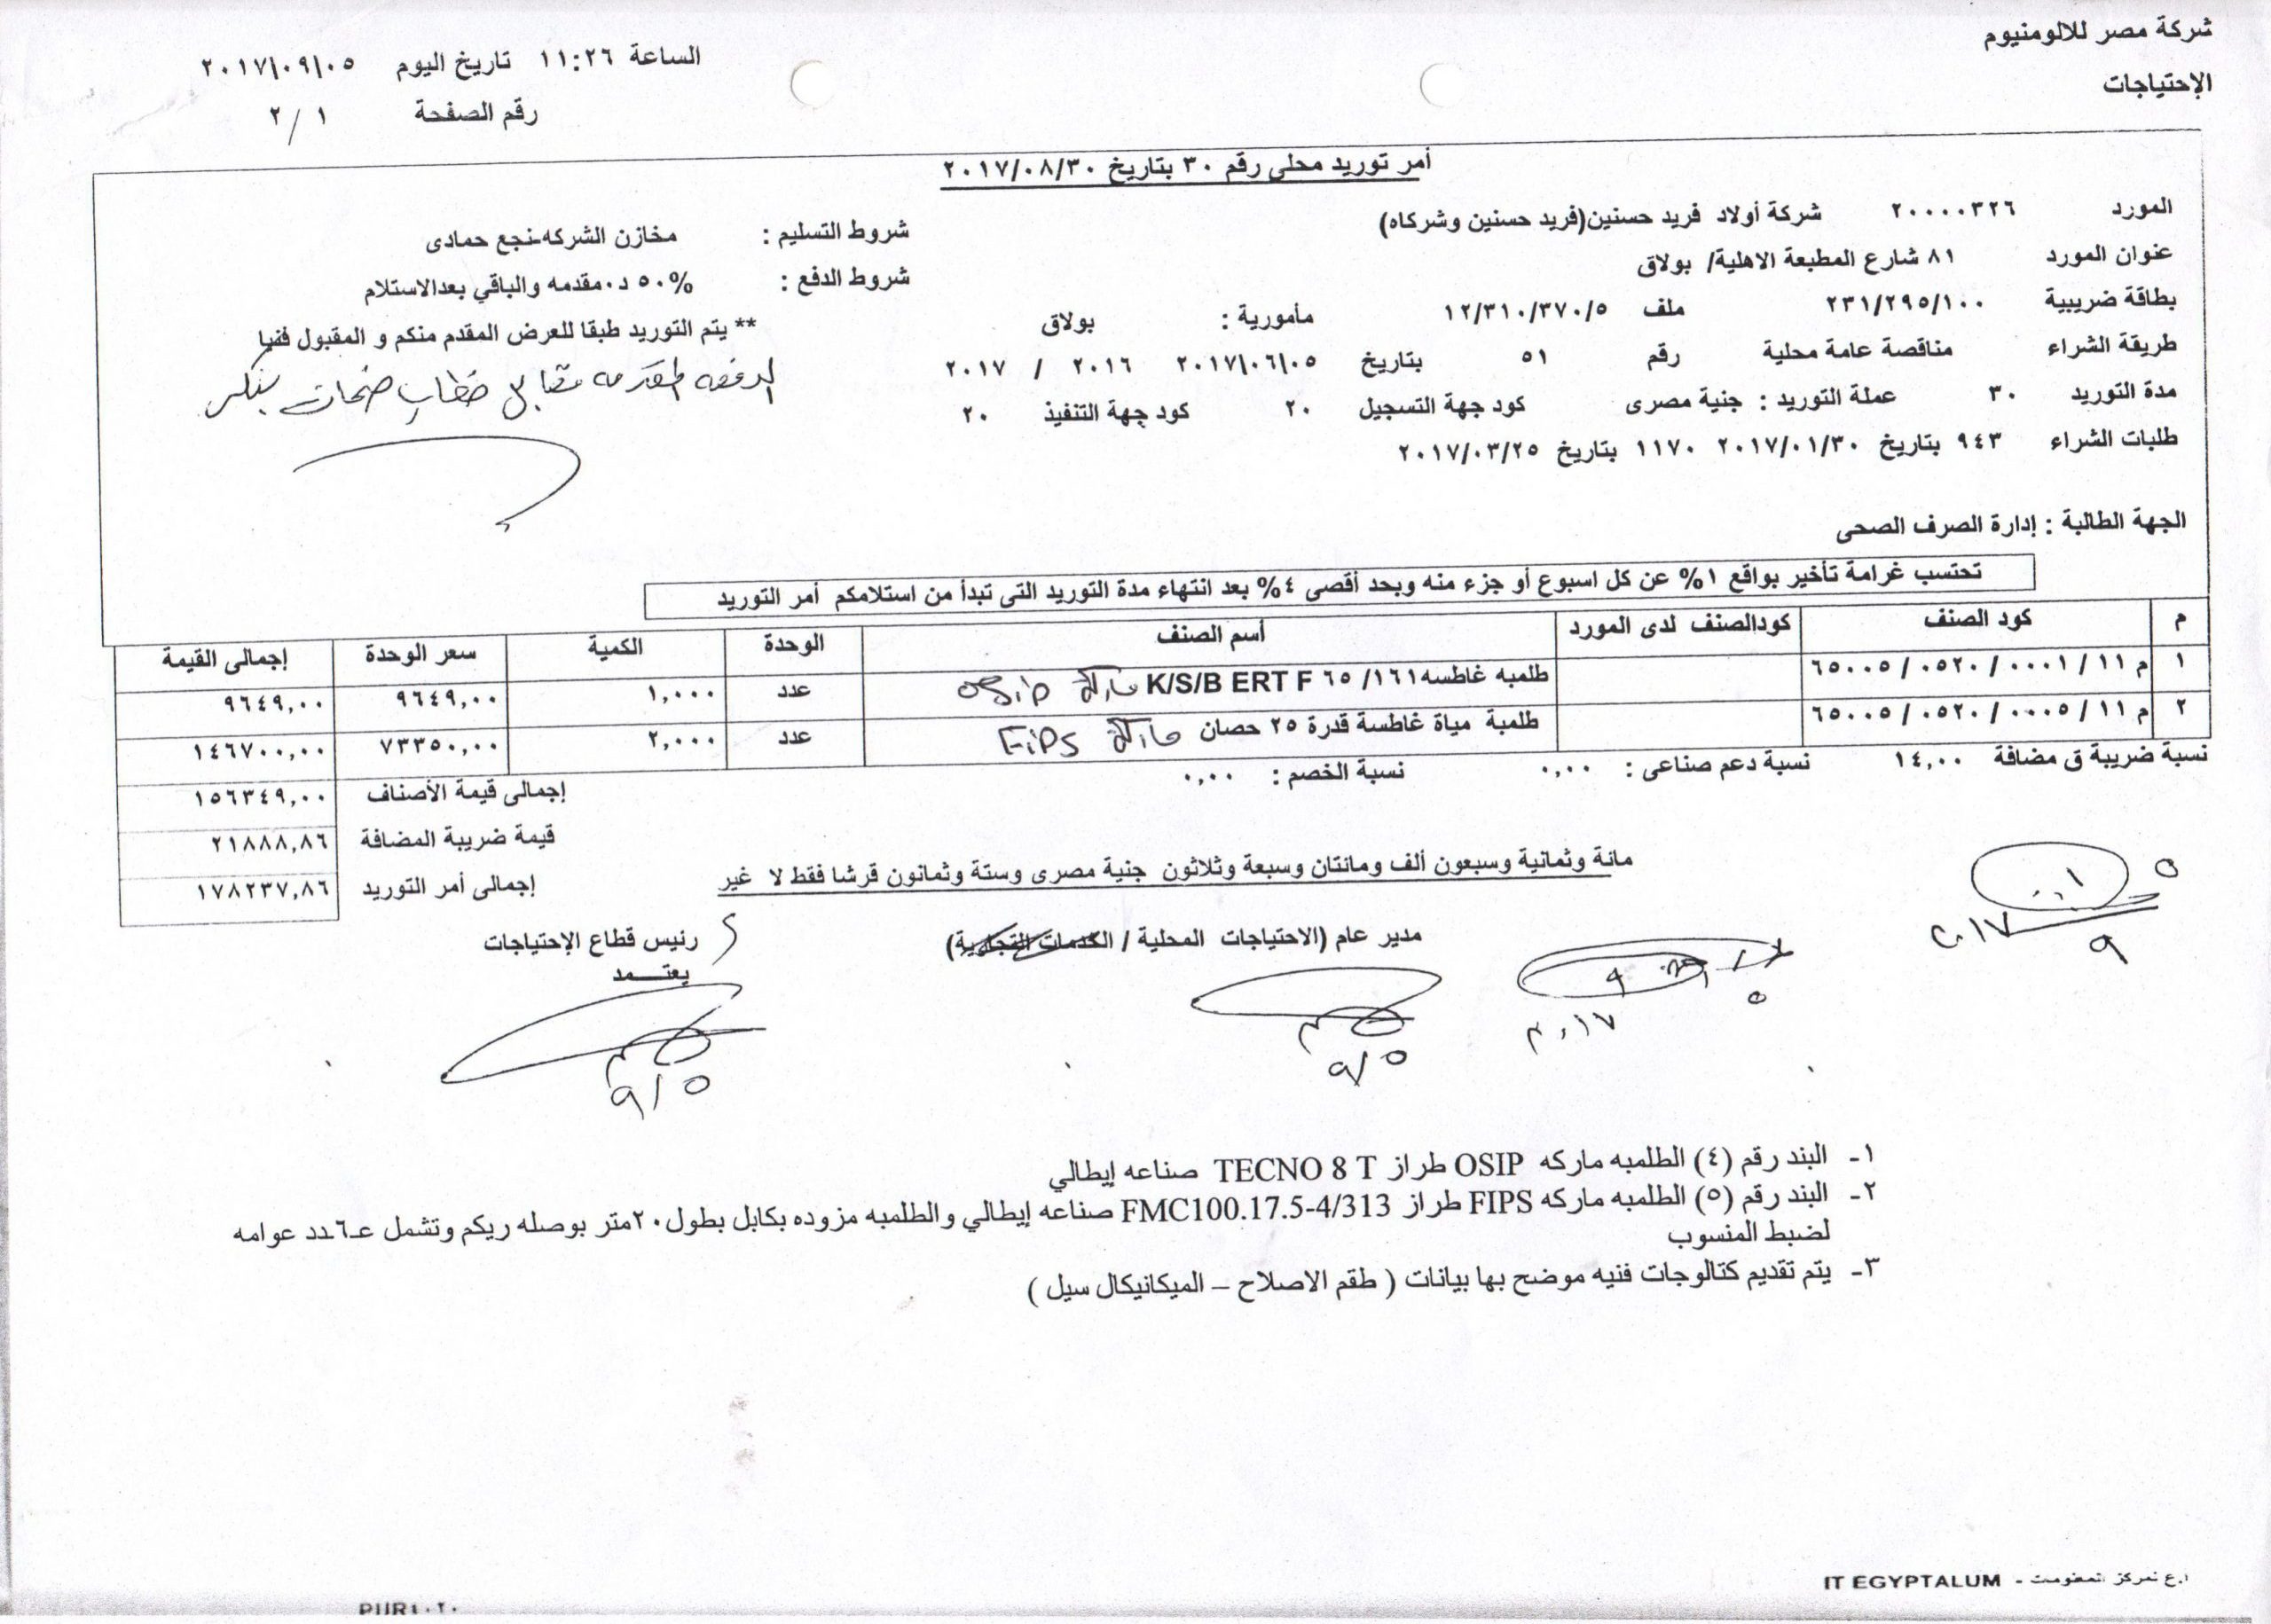 شركة مصر للالومنيوم
الإحتياجات
الساعة ١١:٢٦ تاريخ اليوم ٢٠١٧\٠٩\٠٥
رقم الصفحة ١ / ٢
أمر توريد محلى رقم ٣٠ بتاريخ ٢٠١٧/٠٨/٣٠
المورد ٢٠٠٠٠٣٢٦ شركة أولاد فريد حسنين(فريد حسنين وشركاه)
عنوان المورد ٨١ شارع المطبعة الاهلية/ بولاق
بطاقة ضريبية ٢٣١/٢٩٥/١٠٠ ملف ١٢/٣١٠/٣٧٠/٥ مأمورية : بولاق
طريقة الشراء مناقصة عامة محلية رقم ٥١ بتاريخ ٢٠١٧\٠٦\٠٥ ٢٠١٦ / ٢٠١٧
مدة التوريد ٣٠ عملة التوريد : جنية مصرى كود جهة التسجيل ٢٠ كود جهة التنفيذ ٢٠
طلبات الشراء ٩٤٣ بتاريخ ٢٠١٧/٠١/٣٠ ١١٧٠ بتاريخ ٢٠١٧/٠٣/٢٥
شروط التسليم : مخازن الشركه-نجع حمادى
شروط الدفع : ٥٠% د.مقدمه والباقي بعدالاستلام
** يتم التوريد طبقا للعرض المقدم منكم و المقبول فنيا
الدفعه المقدمه مقابل خطاب ضمان بنكى
الجهة الطالبة : إدارة الصرف الصحى
تحتسب غرامة تأخير بواقع ١% عن كل اسبوع أو جزء منه وبحد أقصى ٤% بعد انتهاء مدة التوريد التى تبدأ من استلامكم أمر التوريد
م كود الصنف كودالصنف لدى المورد أسم الصنف الوحدة الكمية سعر الوحدة إجمالى القيمة
١ م ١١ / ٠٠٠١ / ٠٥٢٠ / ٦٥٠٠٥ طلمبه غاطسه١٦١/ ٦٥ K/S/B ERT F ماركة OSIP عدد ١,٠٠٠ ٩٦٤٩,٠٠ ٩٦٤٩,٠٠
٢ م ١١ / ٠٠٠٥ / ٠٥٢٠ / ٦٥٠٠٥ طلمبة مياة غاطسة قدرة ٢٥ حصان ماركة FiPS عدد ٢,٠٠٠ ٧٣٣٥٠,٠٠ ١٤٦٧٠٠,٠٠
نسبة ضريبة ق مضافة ١٤,٠٠ نسبة دعم صناعى : ٠,٠٠ نسبة الخصم : ٠,٠٠
إجمالى قيمة الأصناف ١٥٦٣٤٩,٠٠
قيمة ضريبة المضافة ٢١٨٨٨,٨٦
إجمالى أمر التوريد ١٧٨٢٣٧,٨٦
مائة وثمانية وسبعون ألف ومائتان وسبعة وثلاثون جنية مصرى وستة وثمانون قرشا فقط لا غير
مدير عام (الاحتياجات المحلية / الخدمات التجارية)
رئيس قطاع الإحتياجات
يعتـــمد
٥
٢٠١٧
٩
٩
٥
٢٠١٧
٩/٥
٩/٥
١- البند رقم (٤) الطلمبه ماركه OSIP طراز TECNO 8 T صناعه إيطالي
٢- البند رقم (٥) الطلمبه ماركه FIPS طراز FMC100.17.5-4/313 صناعه إيطالي والطلمبه مزوده بكابل بطول٢٠متر بوصله ريكم وتشمل عـ٦ـدد عوامه
لضبط المنسوب
٣- يتم تقديم كتالوجات فنيه موضح بها بيانات ( طقم الاصلاح – الميكانيكال سيل )
IT EGYPTALUM - مركز المعلومات
PUR٤٠٢٠